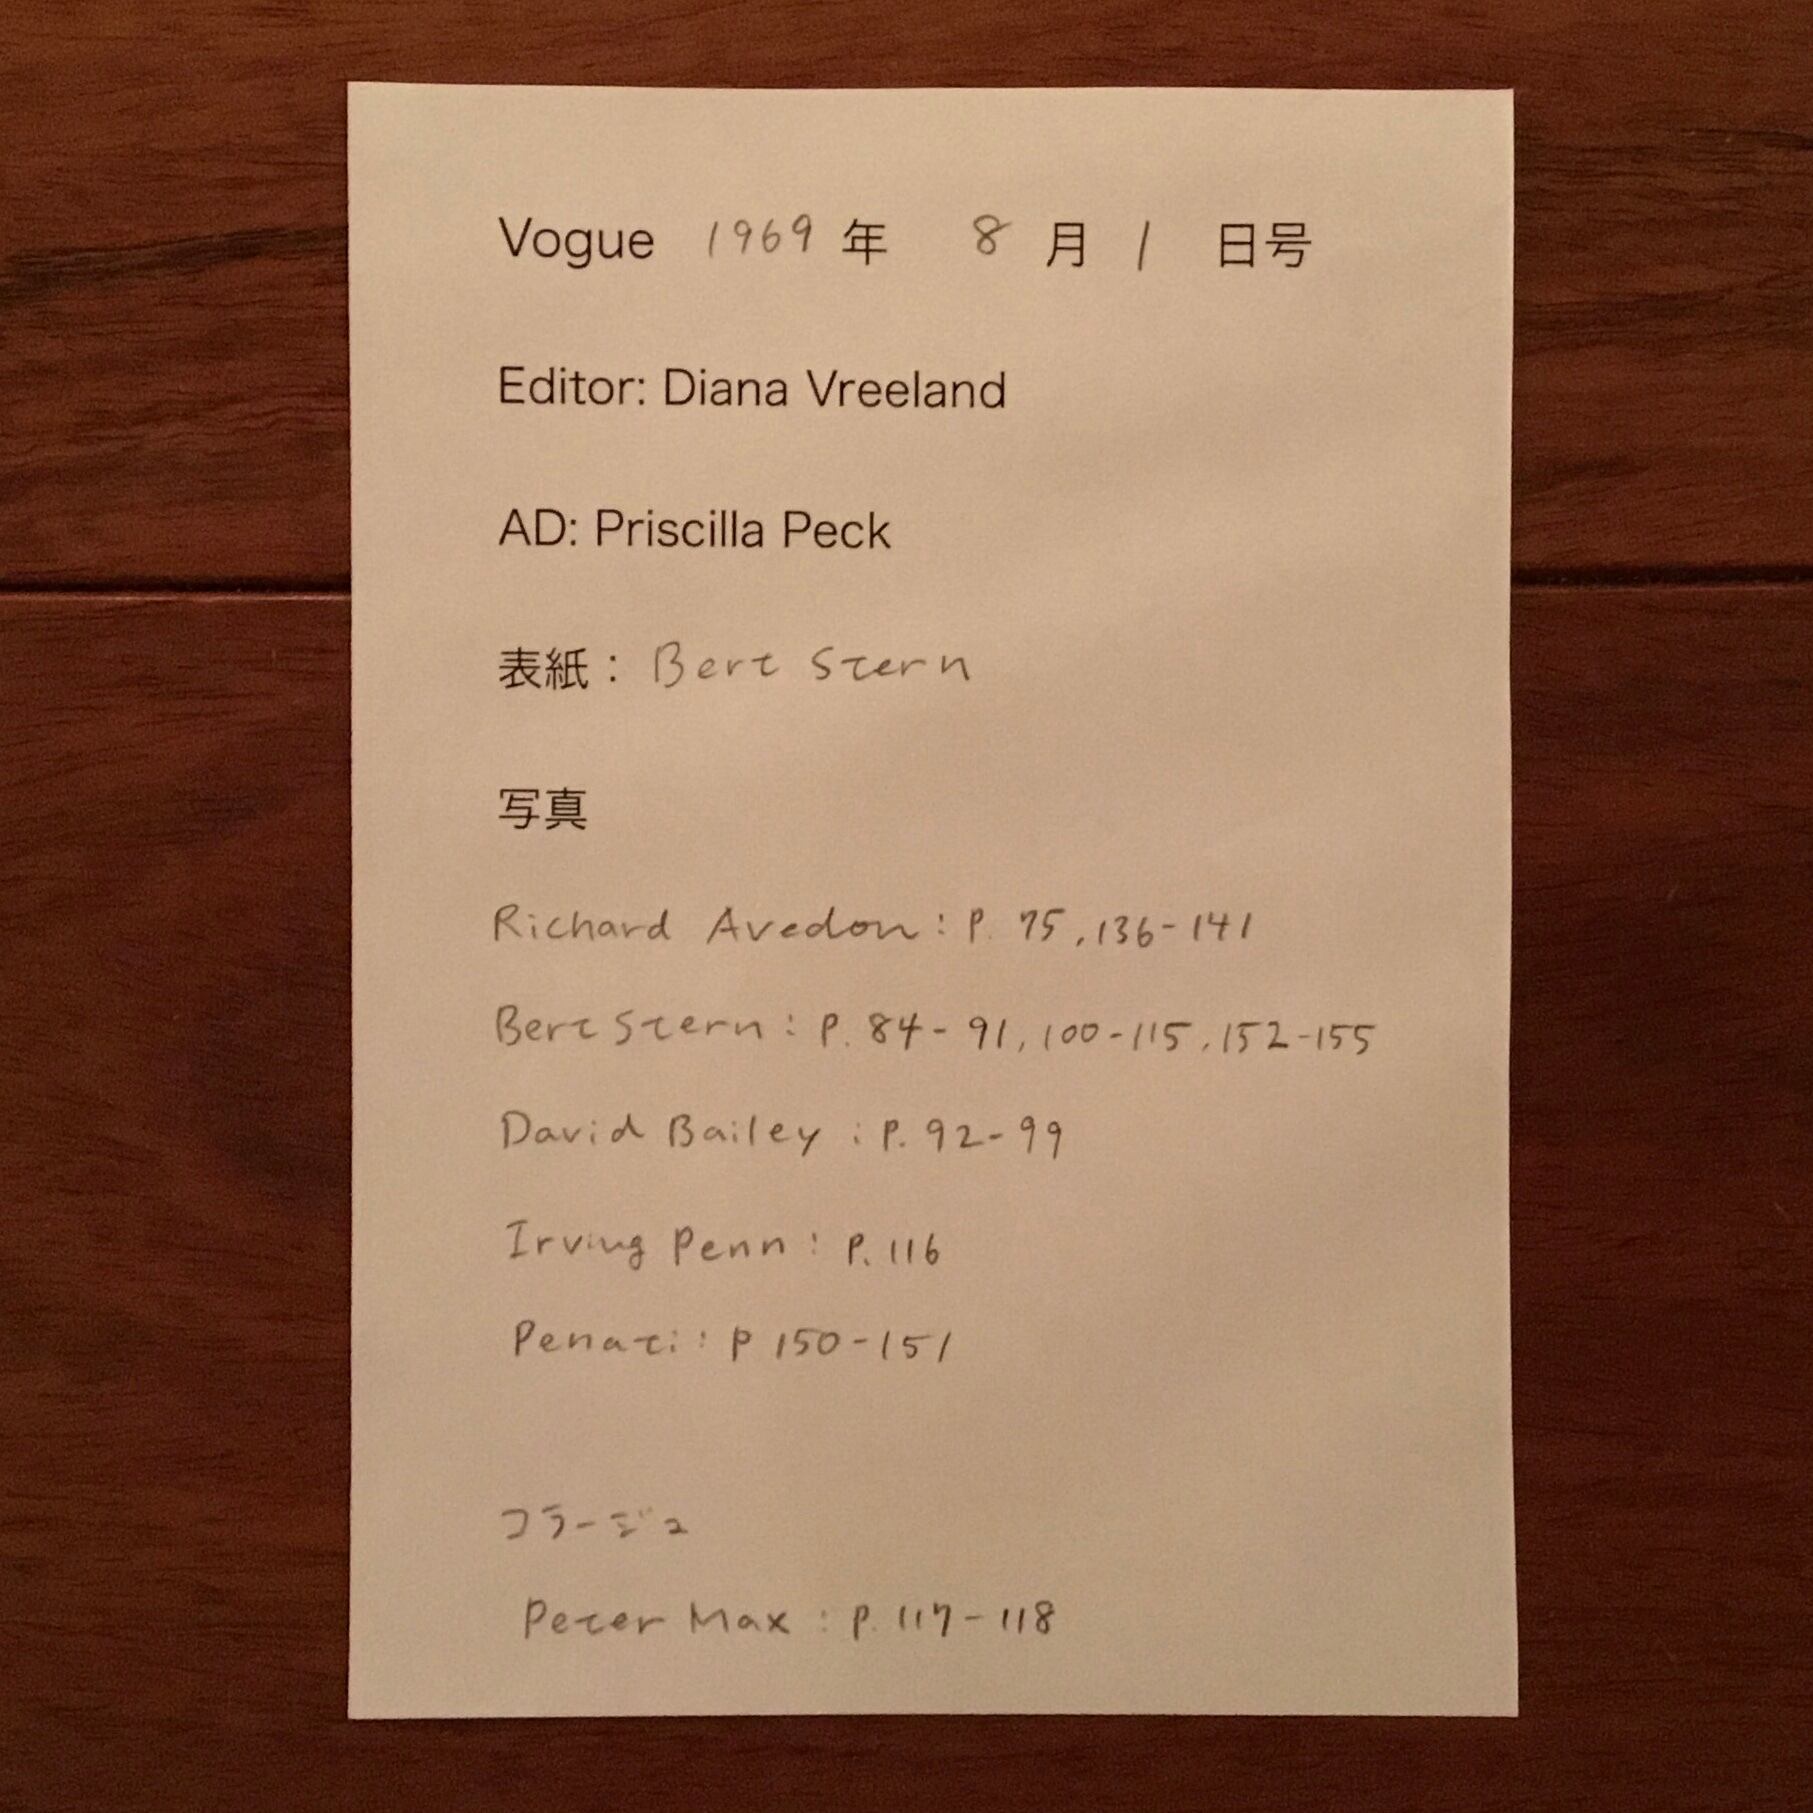 Vogue 1969年 8月1日号
Editor: Diana Vreeland
AD: Priscilla Peck
表紙：Bert Stern
写真
Richard Avedon: P. 75, 136-141
Bert Stern: P. 84-91, 100-115, 152-155
David Bailey: P. 92-99
Irving Penn: P. 116
Penati: P 150-151
コラージュ
Peter Max: P. 117-118